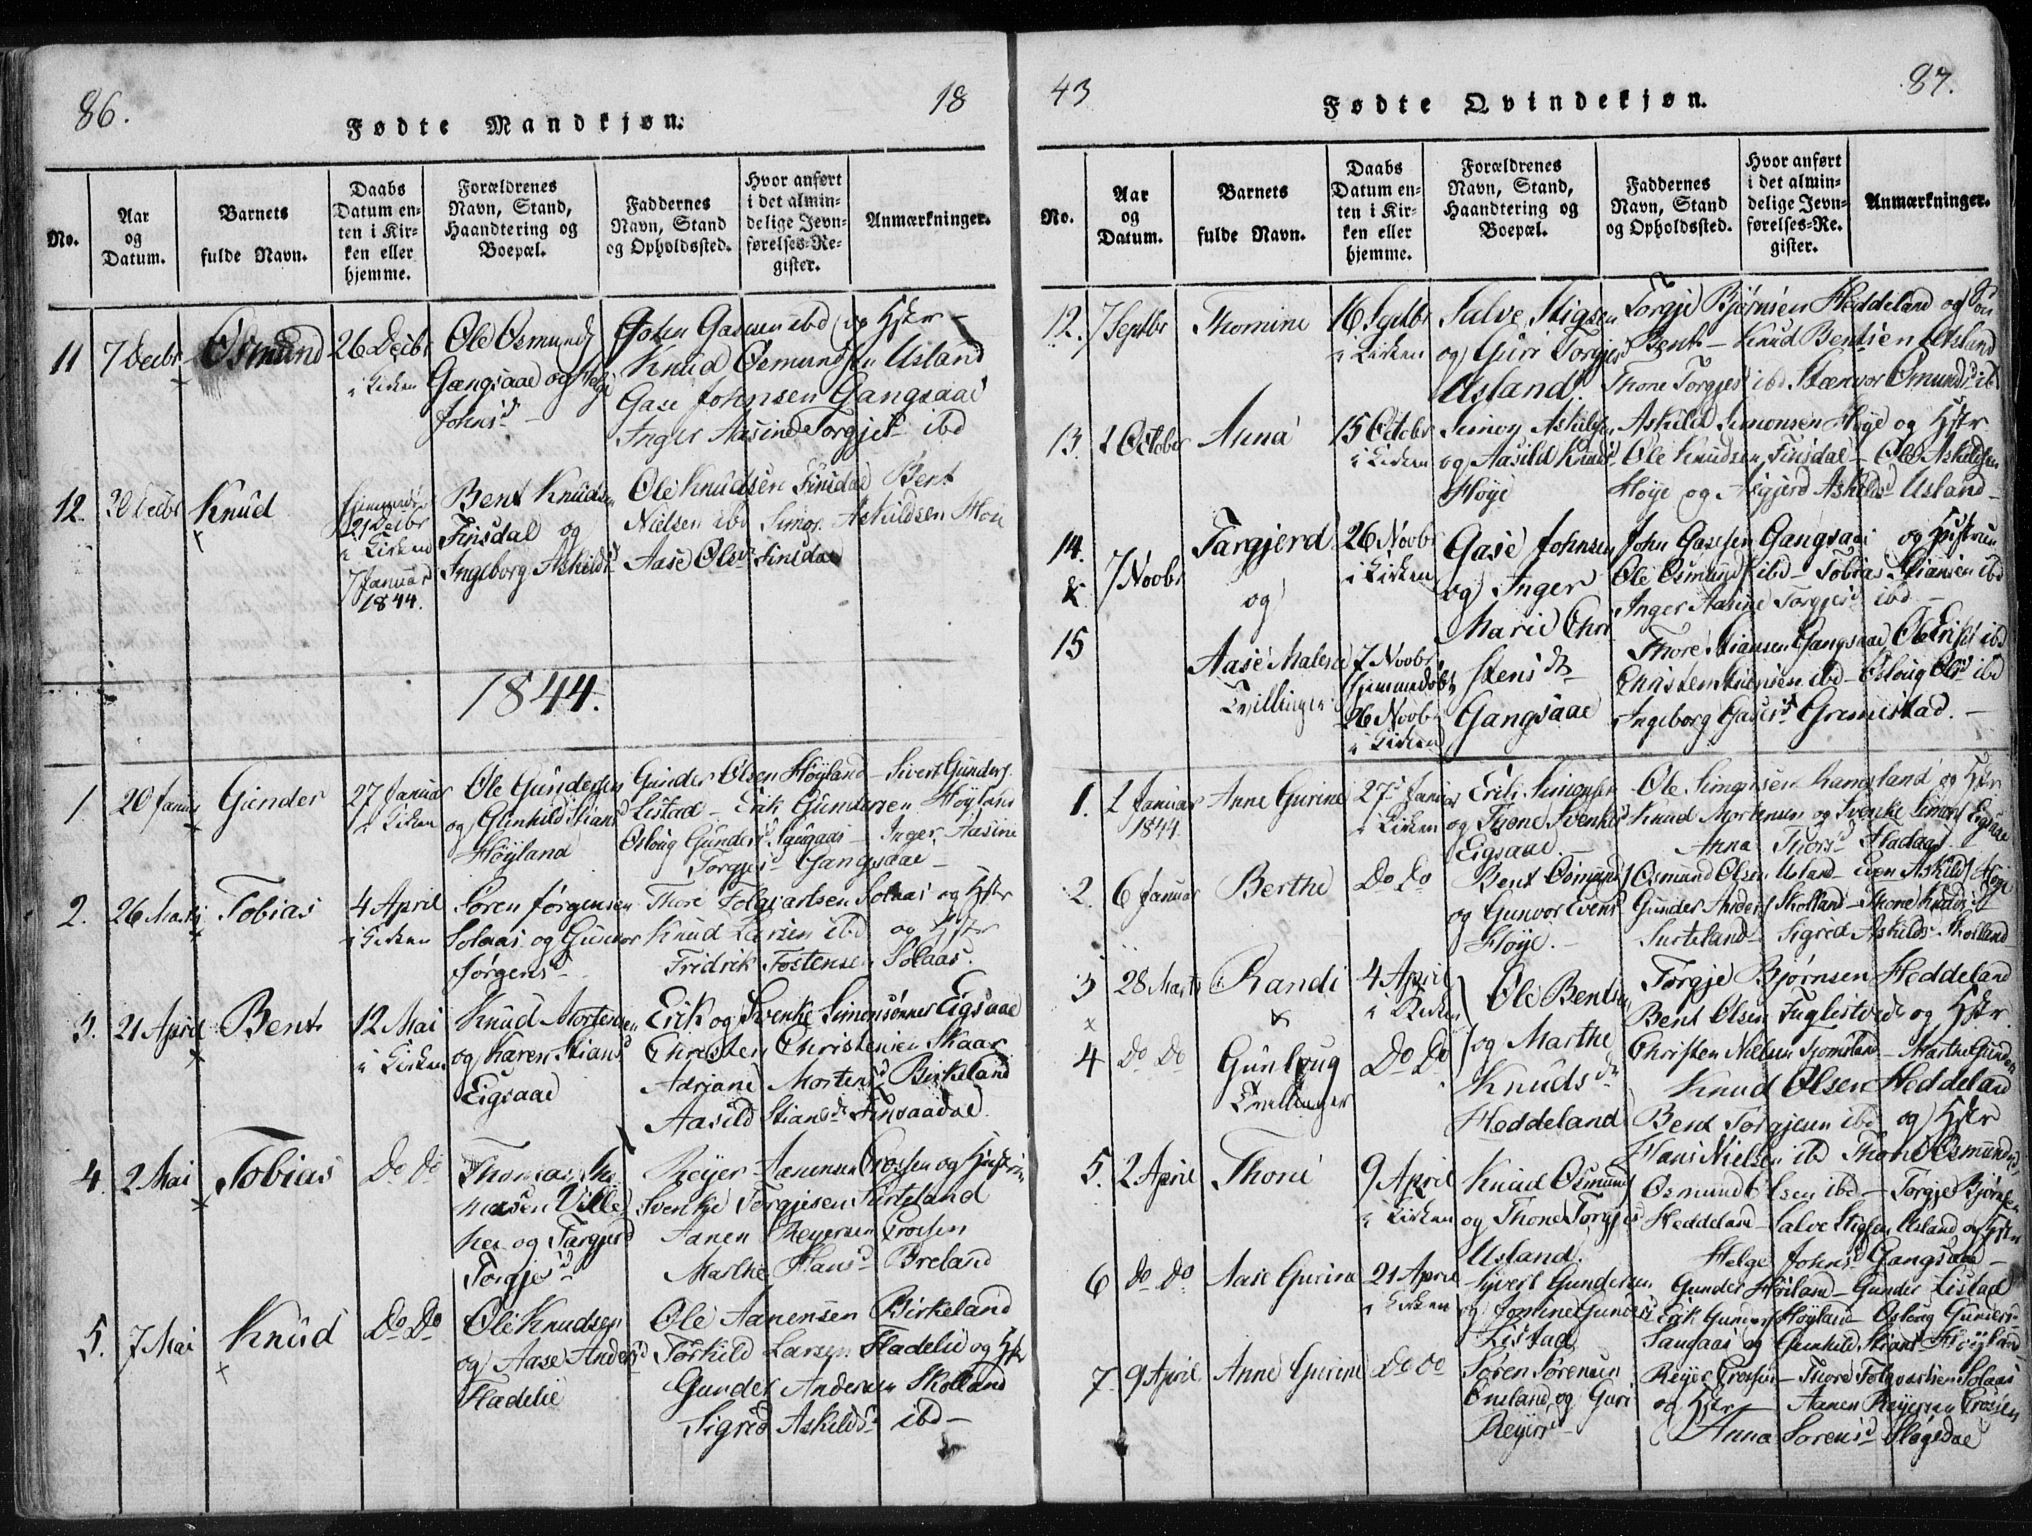 86.
18
Fødte Mandkjøn.
No.
Aar
og
Datum.
Barnets
fulde Navn.
Daabs
Datum en-
ten i Kir-
ken eller
hjemme.
Forældrenes
Navn, Stand,
Haandtering og
Boepæl.
Faddernes
Navn, Stand
og Opholdssted.
Hvor anført
i det almin-
delige Jevn-
førelses-Re-
gister.
Anmærkninger.
11
7 Decbr
Osmund
26 Decbr
i Kirken
Ole Osmunds
Gangsaae og Helge
Johnsd
John Gasesen ibd og Hstr
Knud Osmundsen Usland
Gase Johnsen Gangsaae
Inger Aasine Torgjesd ibd
12.
30 Decbr
Knud
Hjemmedøbt
Decbr
i Kirken
7 Januar
1844.
Bent Knudsen
Finsdal og
Ingeborg Askildsd
Ole Knudsen Finsdal Bent
Nielsen ibd Simon Askildsen Høie
Aase Olsd Finsdal
1844.
1
20 Januar
Gunder
27 Januar
i Kirken
Ole Gundersen
og Gunhild Stiansd
Høyland
Gunder Olsen Høyland - Sivert Gunders.
Listad - Erik Gundersen Høyland
Osloug Gundersd Saugaas - Inger Aasine
Torgjesd Gangsaae -
2.
26 Marts
Tobias
4 April
i Kirken
Søren Jørgensen
Solaas og Gunvor
Jørgensd
Thore Folqvartsen Solaas og Hstr
Knud Larsen ibd og Hstr
Fridrik Tostensen Solaas.
3.
21 April
Bent
12 Mai
i Kirken
Knud Mortensen
og Karen Stiansd
Eigsaae
Erik og Svenke Simonsønner Eigsaae
Christen Christensen Skaar
Adriane Mortensd Birkeland
Aasild Stiansd Finsaadal.
4.
2 Mai
Tobias
Do Do
Thomas Tho
masen Ville
ker og Targjerd
Torgjesd
Reyer Aanensen Crossen og Hustru
Svenke Torgjesen Surteland
Aanen Reyersen Crossen
Marthe Hansd Breland
5.
7 Mai
Knud
Do Do
Ole Knudsen
og Aase Andersd
Hadelie
Ole Aanensen Birkeland
Torkild Larsen Hadelie og Hstr
Gunder Andersen Skolland
Sigrid Askildsd ibd -
43
87.
Fødte Qvindekjøn.
No.
Aar
og
Datum.
Barnets
fulde Navn.
Daabs
Datum en-
ten i Kir-
ken eller
hjemme.
Forældrenes
Navn, Stand,
Haandtering og
Boepæl.
Faddernes
Navn, Stand
og Opholdssted.
Hvor anført
i det almin-
delige Jevn-
førelses-Re-
gister.
Anmærkninger.
12.
7 Septbr
Thomine
16 Septbr
i Kirken
Salve Stigsen
og Guri Torgjesd
Usland.
Torgje Bjørnsen Heddeland og Søn
Bent - Knud Bentsen Usland
Thone Torgjesd ibd Stænvor Osmundsd ibd
13.
October
Anna
15 Octobr
i Kirken
Simon Askildsen
og Aasild Knudsd
Høye
Askild Simonsen Høye og Hstr
Ole Knudsen Finsdal - Ole Askildsen
Høye og Asgjerd Askildsd Usland -
14.
&
15
7 Novbr
Targjerd
og
Aase Malene
Tvillinger
26 Novbr
i Kirken
7 Novbr
Hjemmedøbt
26 Novbr
i Kirken
Gase Johnsen
og Inger
Marie Chri
stensdtr
Gangsaae
John Gasesen Gangsaae og Hustrue
Ole Osmunds ibd - Tobias Stiansen ibd
Inger Aasine Torgjesd ibd -
Thore Stiansen Gangsaae Ole Eriks ibd
Christen Stiansen ibd - Osloug Olsd ibd
Ingeborg Gasesd Grimestad. -
1.
Januar
1844.
Anne Gurine
27 Januar
i Kirken
Erik Simonsen
og Thone Svenkesd
Eigsaae. -
Ole Simonsen Ramsland og Hstr
Knud Mortensen og Svenke Simons Eigsaae
Anna Thorsd Hadaas
2.
6 Januar
Berthe
Do Do
Bent Osmunds
og Gunvor Evensd
Høye. -
Osmund Olsen Usland - Even Askilds Høye
Gunder Anders Skolland - Thone
Surteland - Sigrid Askildsd Skolland
3
28 Marts
Randi
4 April
i Kirken
Ole Bentsen
og Marthe
Knudsdtr
Heddeland
Torgje Bjørnsen Heddeland
Bent Olsen Fuglestvedt og Hstr.
Christen Nielsen Tjomsland - Marthe Gundersd
4
Do Do
Gunloug
Tvillinger
Do Do
Knud Olsen Heddeland
Bent Torgjesen ibd og Hstr
Hans Nielsen ibd Thone Osmundsd
5.
2 April
Thone
9 April
i Kirken
Knud Osmunds
og Thone Torgjesd
Usland.
Osmund Olsen ibd - Torgje Bjørnsen
Heddeland - Salve Stigsen Usland og Hstr
Helge Johnsd Gangsaae -
6
Do Do
Aase Gurine
21 April
i Kirken
Syvert Gundersen
og Jomine Gundersd
Listad
Gunder Høiland - Gunder Listad
Erik Gunders Høyland - Osloug Gundersd
Saugaas og Gunhild Stiansd Høyland
7.
9 April
Anne Gurine
Do Do
Søren Sørensen
Omland og Guri
Reyersd
Reyer Crossen - Thore Folqvartsen Solaas
og Hstr - Aanen Reyersen Crossen
Anna Sørensd Øiesdal